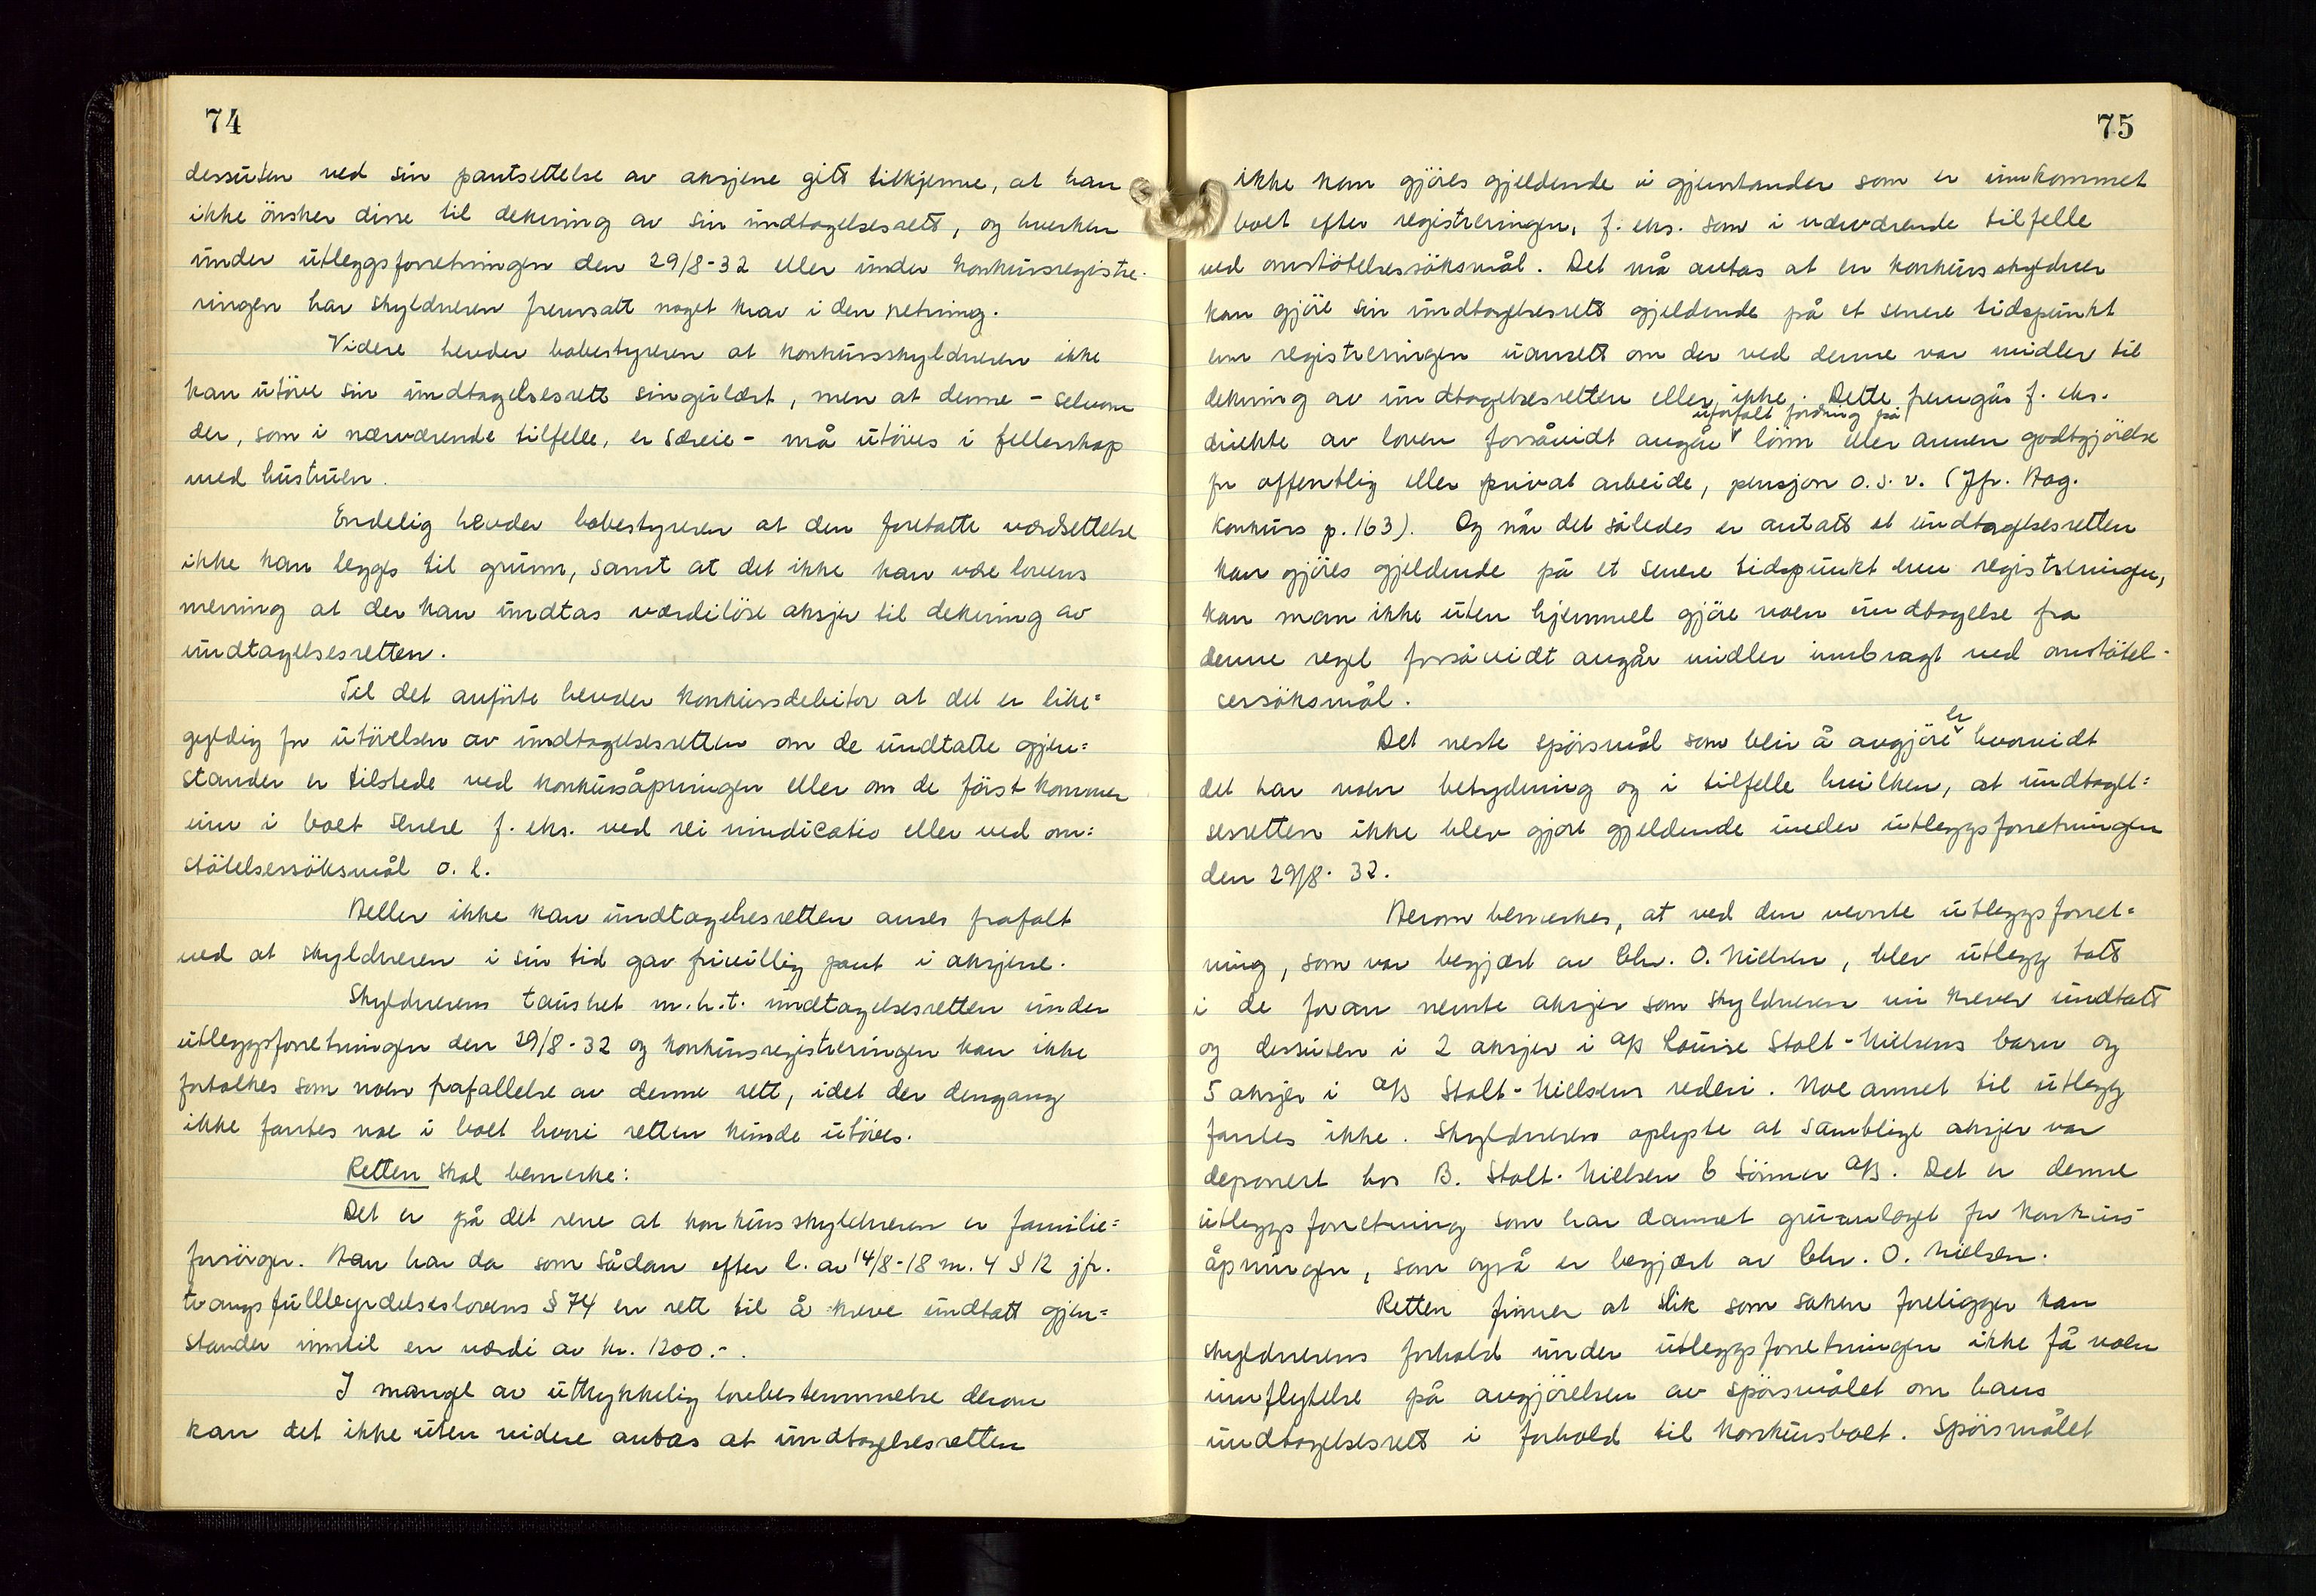 74
dessuten ved sin pantsettelse av aksjene gitt tilkjenne, at han
ikke önsker disse til dekning av sin undtagelsesrett, og hverken
under utleggsforretningen den 29/8-32 eller under konkursregistre-
ringen har skyldneren fremsatt noget krav i den retning.
Videre hevder bobestyreren at konkursskyldneren ikke
kan utöve sin undtagelsesrett singulært, men at denne - selvom
der, som i nærværende tilfelle, er særeie - må utöves i fellesskap
med hustruen.
Endelig hevder bobestyreren at den foretatte værdsettelse
ikke kan legges til grunn, samt at det ikke kan være lovens
mening at der kan undtas værdilöse aksjer til dekning av
undtagelsesretten.
Til det anförte hevder konkursdebitor at det er like=
gyldig for utövelsen av undtagelsesretten om de undtatte gjen=
stander er tilstede ved konkursåpningen eller om de först kommer
inn i boet senere f. eks. ved rei vindicatio eller ved om=
stötelsessöksmål o. l.
Heller ikke kan undtagelsesretten anses frafalt
ved at skyldneren i sin tid gav frivillig pant i aksjene.
Skyldnerens taushet m.h.t. undtagelsesretten under
utleggsforretningen den 29/8-32 og konkursregistreringen kan ikke
fortolkes som noen frafallelse av denne rett, idet der dengang
ikke fantes noe i boet hvori retten kunde utöves.
Retten skal bemerke:
Det er på det rene at konkursskyldneren er familie=
forsörger. Han har da som sådan efter l. av 14/8-18 nr. 4 § 12 jfr.
tvangsfullbyrdelseslovens § 74 en rett til å kreve undtatt gjen=
stander inntil en værdi av kr. 1200.-.
I mangel av uttrykkelig lovbestemmelse derom
kan det ikke uten videre antas at undtagelsesretten
75
ikke kan gjöres gjeldende i gjenstander som er innkommet
boet efter registreringen, f. eks. som i nærværende tilfelle
ved omstötelsessöksmål. Det må antas at en konkursskyldner
kan gjöre sin undtagelsesrett gjeldende på et senere tidspunkt
enn registreringen uansett om der ved denne var midler til
dekning av undtagelsesretten eller ikke. Dette fremgår f. eks.
uforfalt fordring på
direkte av loven forsåvidt angår lönn eller annen godtgjörelse
for offentlig eller privat arbeide, pensjon o.s.v. (Jfr. Hag.
Konkurs p. 163). Og når det således er antatt at undtagelsesretten
kan gjöres gjeldende på et senere tidspunkt enn registreringen,
kan man ikke uten hjemmel gjöre noen undtagelse fra
denne regel forsåvidt angår midler innbragt ved omstötel-
sessöksmål.
er
Det neste spörsmål som blir å avgjöre hvorvidt
det har noen betydning og i tilfelle hvilken, at undtagel=
sesretten ikke blev gjort gjeldende under utleggsforretningen
den 29/8-32.
Herom bemerkes, at ved den nevnte utleggsforret=
ning, som var begjært av Chr. O. Nielsen, blev utlegg tatt
i de foran nevnte aksjer som skyldneren nu krever undtatt
og dessuten i 2 aksjer i a/s Louise Stolt-Nielsens barn og
5 aksjer i a/s Stolt-Nielsens rederi. Noe annet til utlegg
fantes ikke. Skyldneren oplyste at samtlige aksjer var
deponert hos B. Stolt-Nielsen & Sönner a/s. Det er denne
utleggsforretning som har dannet grunnlaget for konkurs-
åpningen, som også er begjært av Chr. O. Nielsen.
Retten finner at slik som saken foreligger kan
skyldnerens forhold under utleggsforretningen ikke få noen
innflytelse på avgjörelsen av spörsmålet om hans
undtagelsesrett i forhold til konkursboet. Spörsmålet